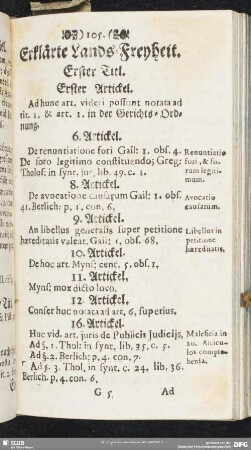 ) 105. (
Erklärte Lands-Freyheit.
Erster Titl.
Erster Artickel.
Ad hunc art. videri possunt notata ad
tit. 1. & art. 1. in der Gerichts-Ord-
nung.
6. Artickel.
De renuntiatione fori Gail: 1. obs. 4.
De foro legitimo constituendo; Greg:
Tholos: in synt. jur, lib. 49. c. 1.
Renuntiatio
fori, & fo-
rum legiti-
mum.
8. Artickel.
De avocatione causarum Gail: 1. obs.
41. Berlich: p. 1. con. 6.
Avocatio
causarum.
9. Artickel.
An libellus generalis super petitione
hæreditatis valeat. Gail: 1. obs. 68.
Libellus in
petitione
hæreditatis.
10. Artickel.
De hoc art. Myns: cent. 5. obs. 1.
11. Artickel.
Myns: mox dicto loco.
12. Artickel.
Confer huc notata ad art. 6, superius.
16. Artickel.
Huc vid. art. juris de Publicis Judicijs.
Ad §. 1. Thol: in synt. lib. 35. c. 5.
Ad §. 2. Berlich: p. 4. con. 7.
Ad §. 3. Thol. in synt. c. 24. lib. 36.
Berlich. p. 4. con. 6.
Malefacia in
20. Articu-
los compre-
henia.
G 5
Ad
SLUB
DFG